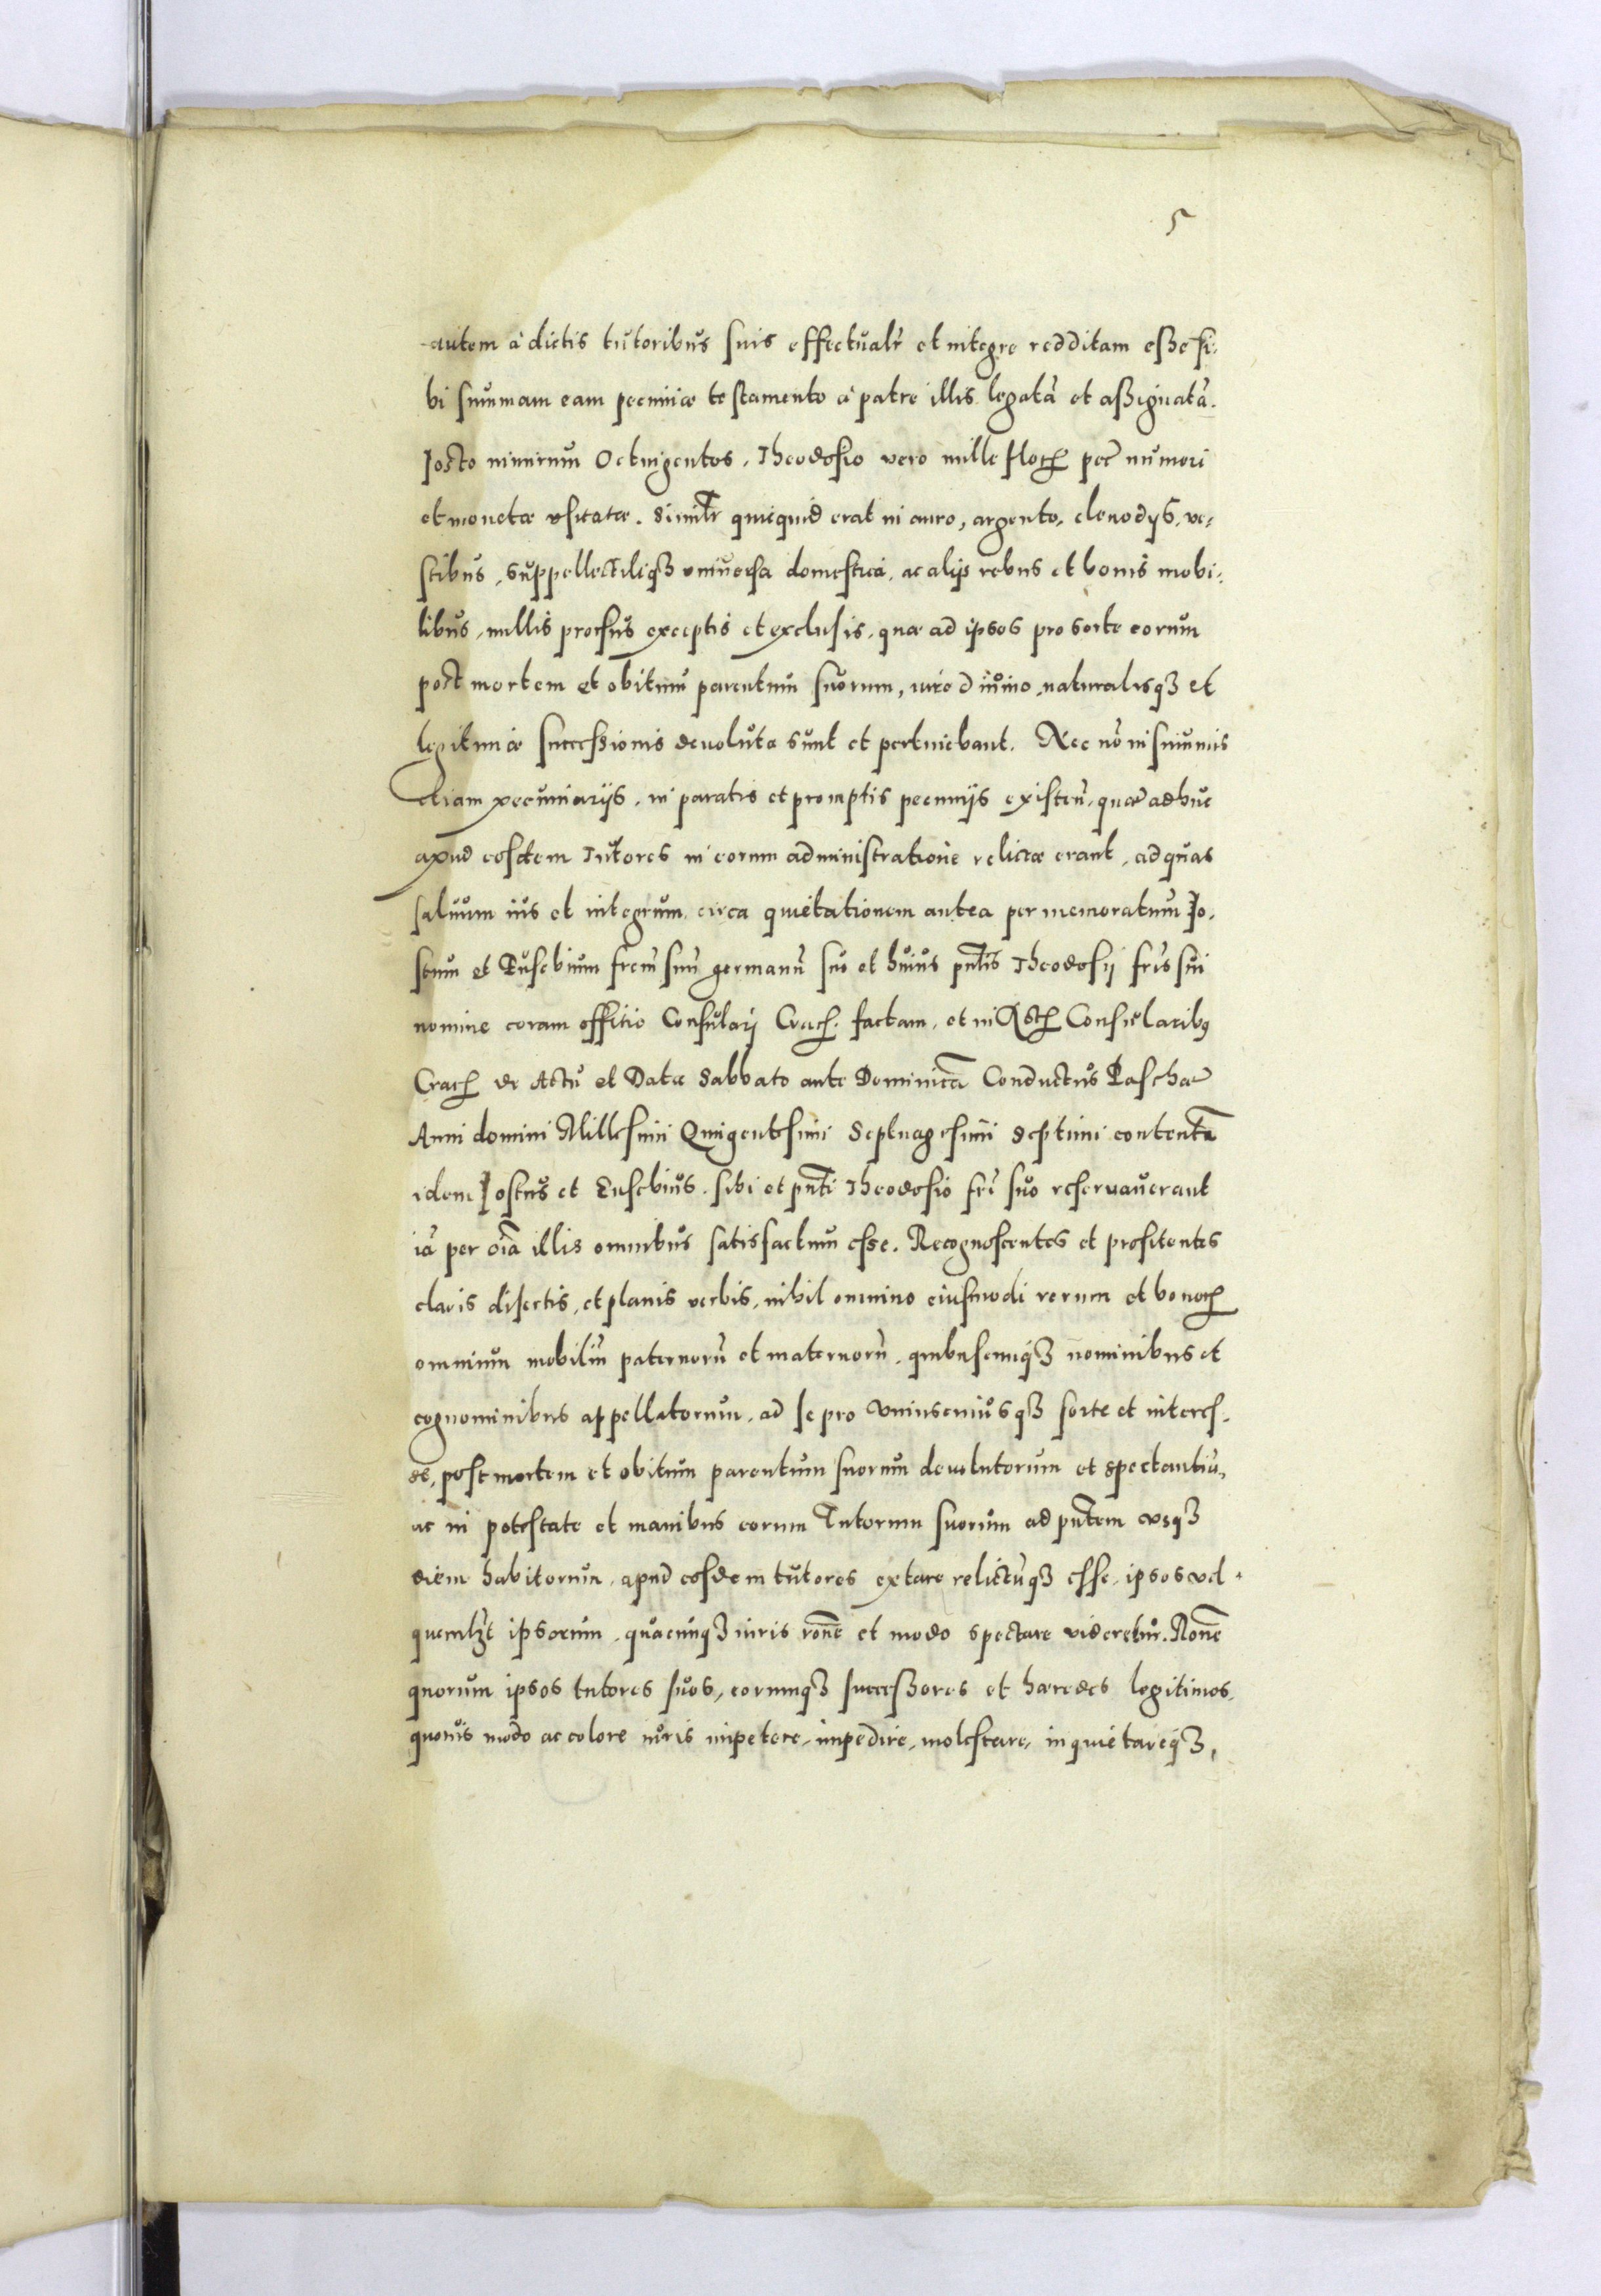 5
autem à dictis tutoribus suis effectualr̃ et integre redditam esse si-
bi summam eam pecuniæ testamento à patre illis legatã et assignatã.
Josto nimirum Octuigentos, Theodosio vero mille floꝝ pec̃ numeri
et monetæ usitatæ. Similr̃ quicquid erat in auro, argento, clenodijs, ve-
stibus, suppellectiliqꝫ universa domestica, ac alijs rebus et bonis mobi-
libus, nullis prorsus exceptis et exclusis, quæ ad ipsos pro sorte eorum
post mortem et obitum parentum suorum, iure divino, naturalisqꝫ et
legitimæ successionis devoluta sunt et pertinebant. Nec nõ in summis
etiam pecuniarijs, in paratis et promptis pecunijs existeñ, quæ adhuc
apud eosdem Tutores in eorum administratione relictæ erant, ad quas
salvum ius et integrum circa quietationem antea per memoratum Jo-
stum et Eusebium frem̃ suũ germanũ suo et huius pñtis Theodosij fris̃ sui
nomine coram offitio Consulari Cracꝝ. factam, et in Actꝝ Consularibꝰ
Cracꝝ de Actu et Data Sabbato ante Dominicã Conductus Paschæ
Anni domini Millesimi Quingentesimi Septuagesimi septimi contentã
idem Jostus et Eusebius, sibi et pñti Theodosio fri̇̃ suo reservaverant
iã per oĩa illis omnibus satisfactum esse. Recognoscentes et profitentes
claris disertis, et planis verbis, nihil omnino eiusmodi rerum et bonoꝝ
omnium mobiliũ paternorũ et maternorũ, quibuscunqꝫ nominibus et
cognominibus appellatorum, ad se pro uniuscuiusqꝫ sorte et interes-
se, post mortem et obitum parentum suorum devolutorum et spectantiũ,
ac in potestate et manibus eorum Tutorum suorum ad pñtem usqꝫ
diem habitorum, apud eosdem tutores extare relictũqꝫ esse, ipsos vel
quemlꝫt ipsorum, quacunqꝫ iuris rõne et modo spectare videretur. Rõne
quorum ipsos tutores suos, eorumqꝫ successores et hæredes legitimos,
quovis modo ac colore iuris impetere, impedire, molestare, inquietareqꝫ,